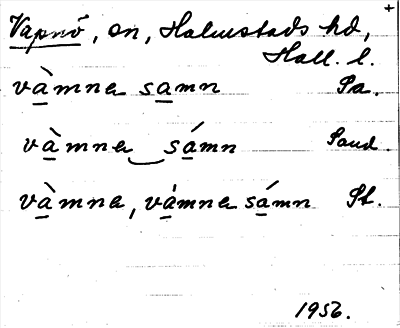 Vapnö, sn, Halmstads hd,
Hall. l.
và̱mna sa̱mn Sa.
và̱mna‿sá̱mn Sand.
và̱mna, vá̱mna sá̱mn St.
1956.